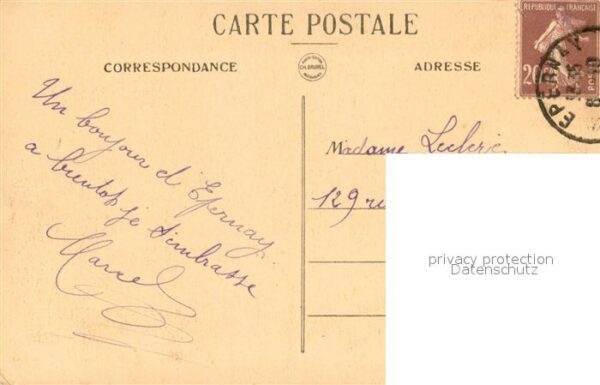 CARTE POSTALE
CORRESPONDANCE
CH. BRUNEL
ADRESSE
REPUBLIQUE FRANÇAISE
20
POSTES
EPERNAY
Un bonjour d'Epernay
a bientot je t'embrasse
Marcel
Madame Leclerc
129 ru
privacy protection
Datenschutz